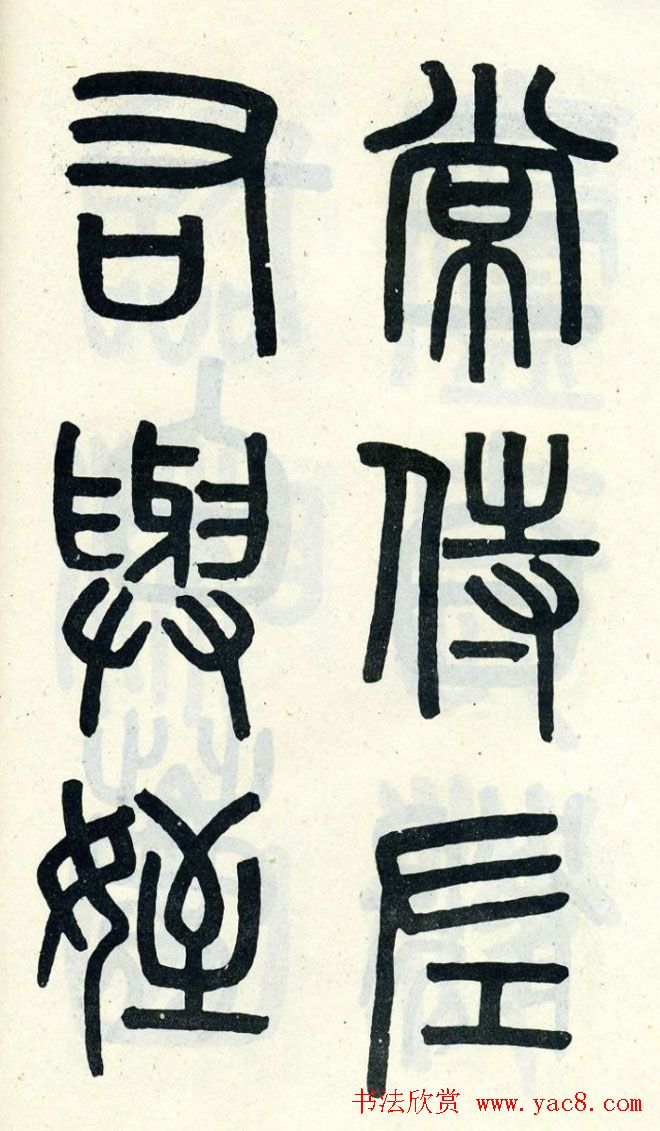 常侍左
右與姪
书法欣赏 www.yac8.com